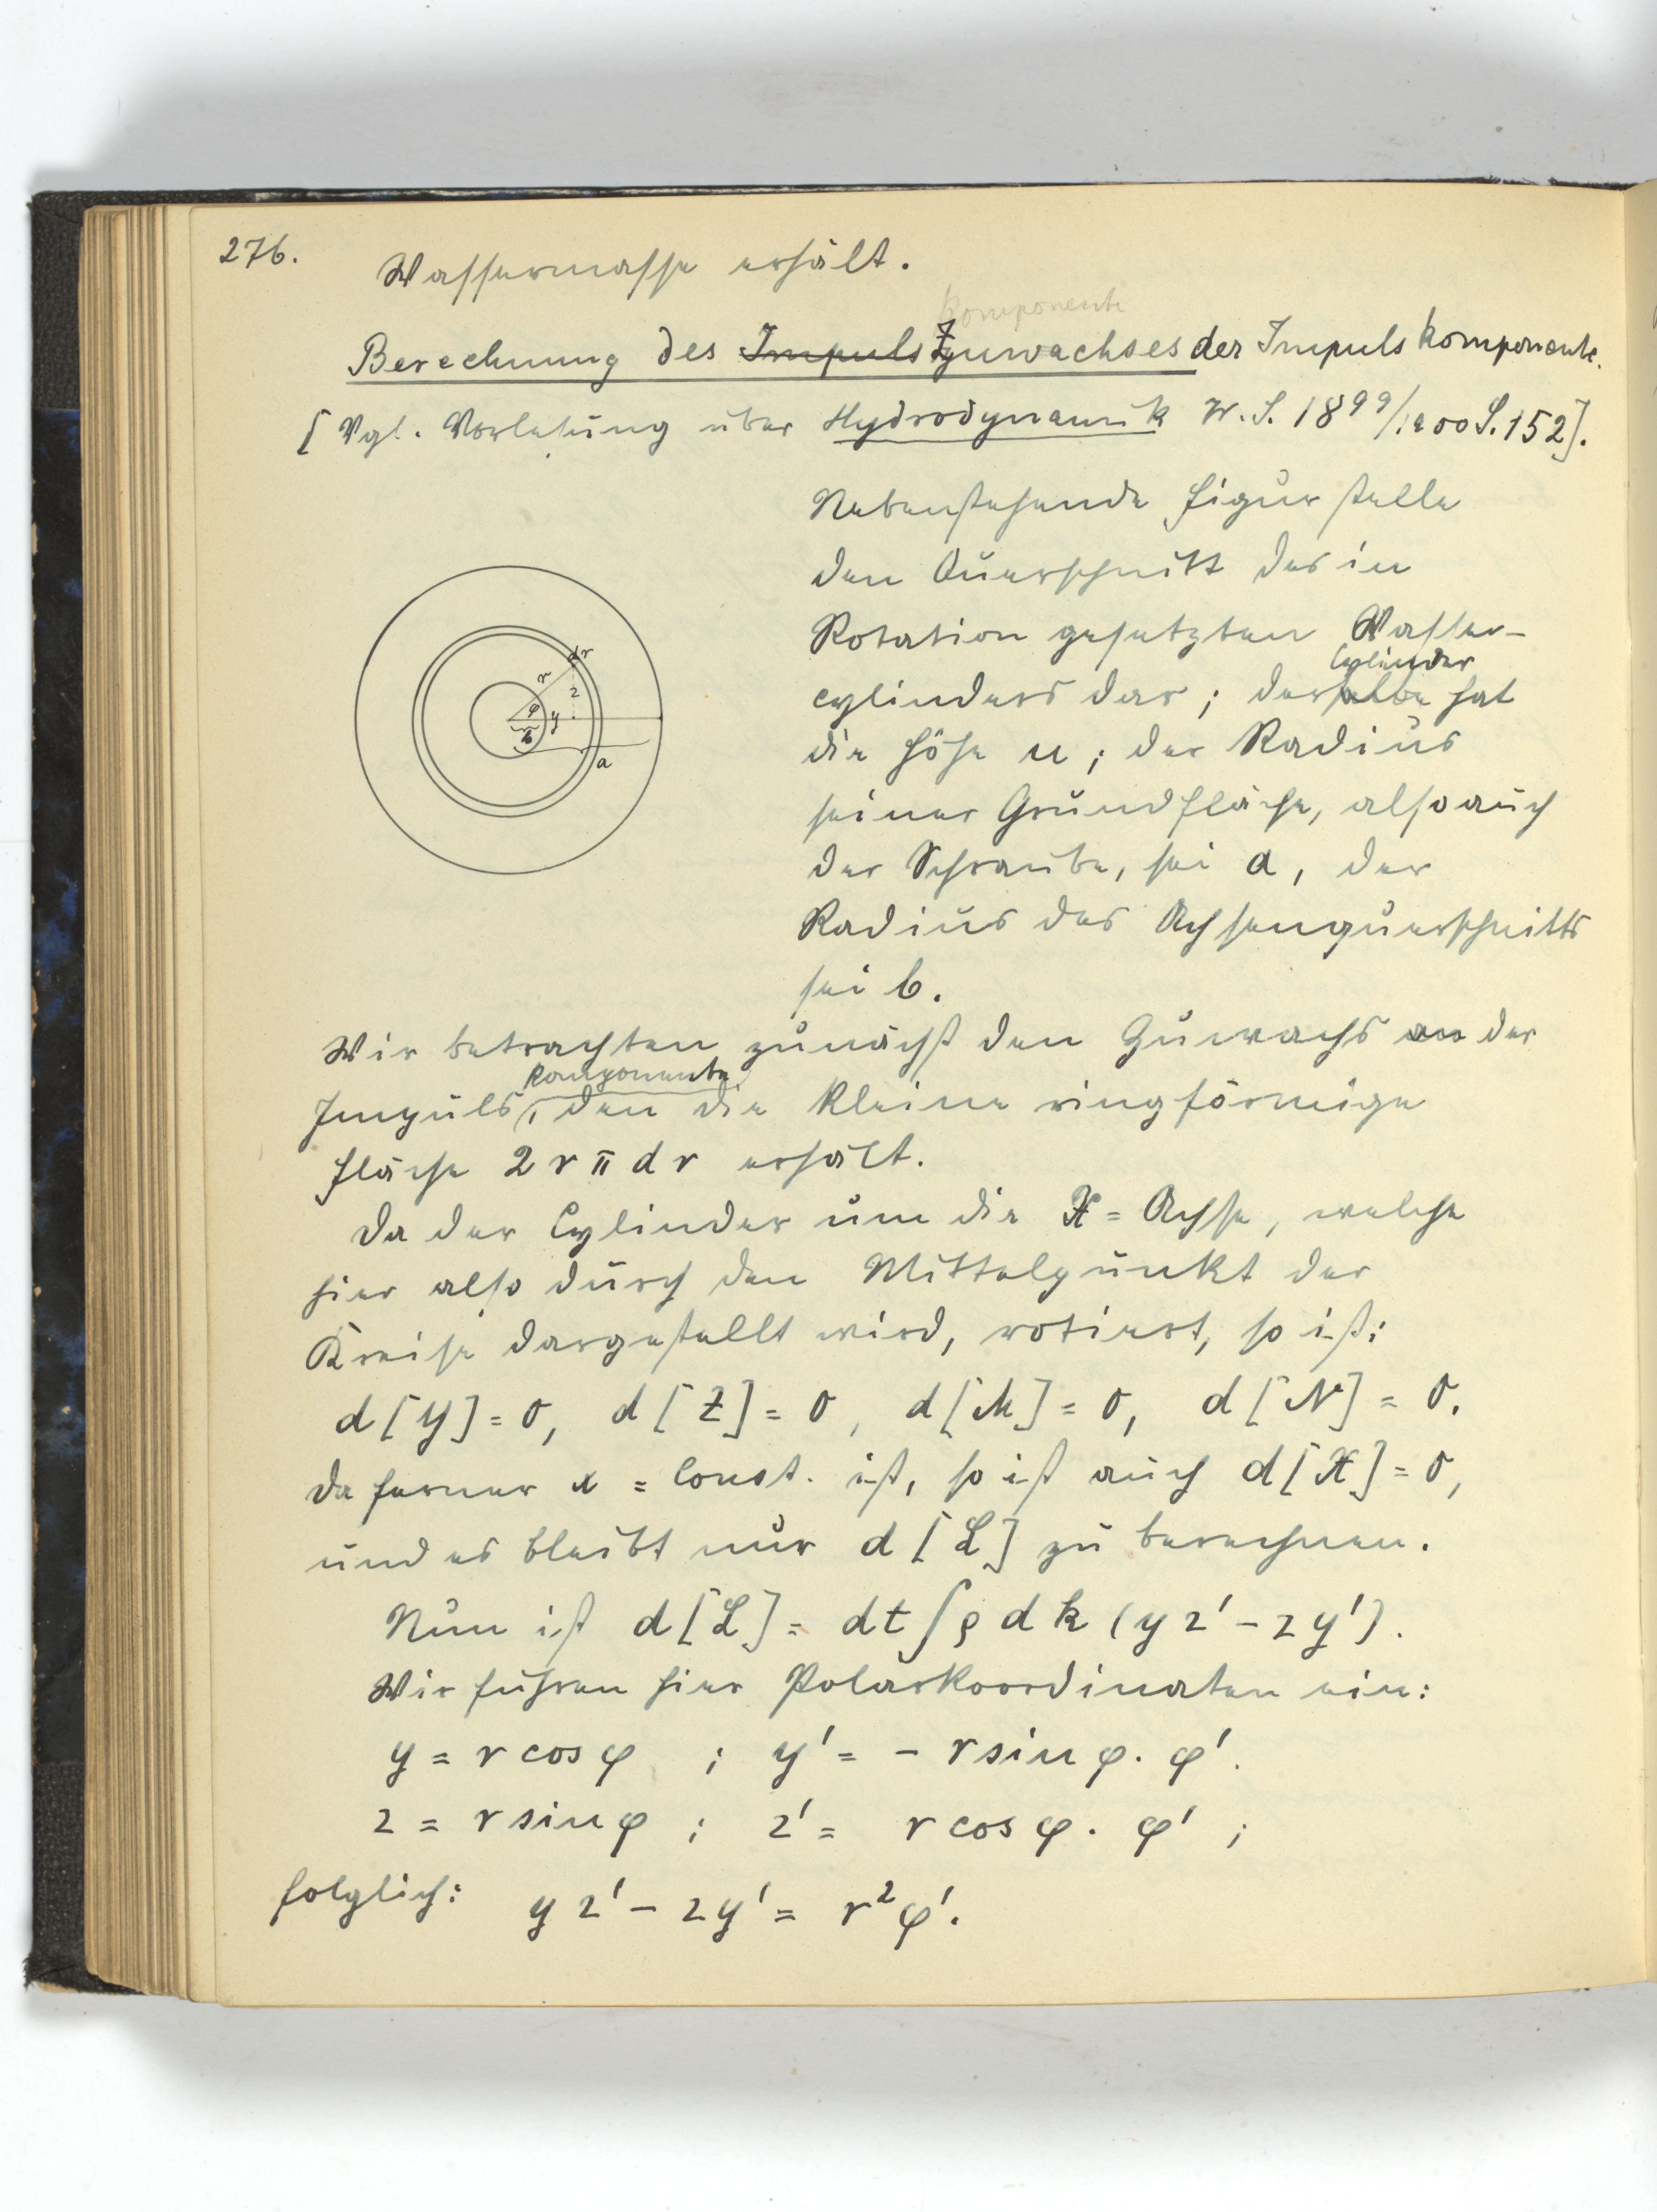 276.
Wassermasse erhält.
komponente
Berechnung des Impuls Zuwachses der Impulskomponente.
[Vgl. Vorlesung über Hydrodynamik W.S. 1899/1900 S. 152].
Nebenstehende Figur stelle
den Querschnitt des in
Rotation gesetzten Wasser-
cylinders dar; der Cylinder hat
die Höhe u; der Radius
seiner Grundfläche, also auch
der Schraube, sei a, der
Radius des Achsenquerschnitts
sei b.
dr
r
z
φ
y
b
a
Wir betrachten zunächst den Zuwachs der
Impulskomponente, den die kleine ringförmige
Fläche 2rπdr erhält.
Da der Cylinder um die X=Achse, welche
hier also durch den Mittelpunkt der
Kreise dargestellt wird, rotiert, so ist:
d[Y]=0, d[Z]=0, d[M]=0, d[N]=0.
Da ferner x = Const. ist, so ist auch d[X]=0,
und es bleibt nur d[L] zu berechnen.
Nun ist d[L] = dt∫ρdk(yz'-zy').
Wir führen hier Polarkoordinaten ein:
y = r cos φ ; y' = - r sin φ. φ'.
z = r sin φ ; z' = r cos φ. φ' ;
folglich: yz' - zy' = r²φ'.